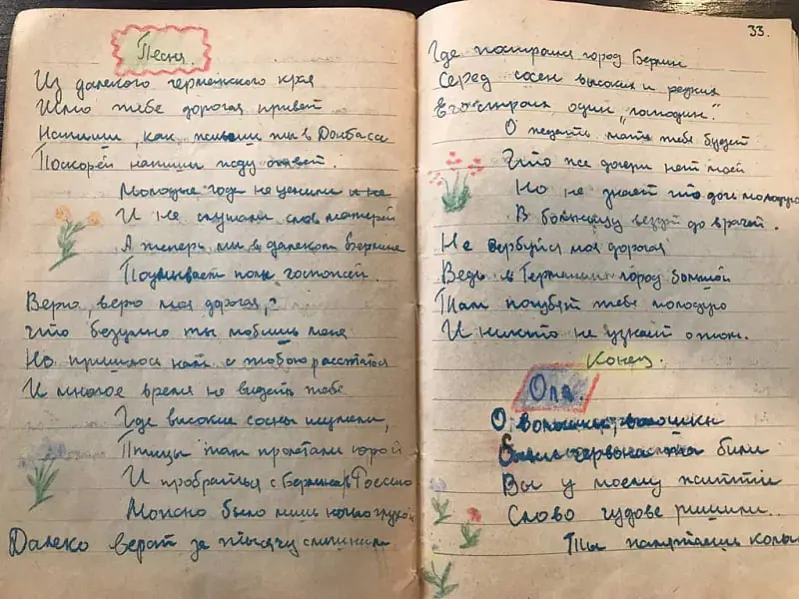 Песня.
Из далекого германского края
Шлю тебе дорогая привет
Напиши, как живеш ты в Донбаса
Поскорей напиши жду ответ.
Молодые годы не ценили
И не слушали слов матерей
А теперь мы в далеком Берлине
пол госпожей.
Верю, верю моя дорогая,
Что безумно ты любишь меня
Но пришлося нам с тобою расстаться
И многое время не видеть тебе
Где высокие сосны шумели,
Птицы там пролетали юрой
И пробраться с Берлина в Россию
Можно было лишь
Далеко верст за тысячу слишним
33.
Где построен город Берлин
Серед сосен высоких и редких
один „господин".
О неделю мать тебя будет
Что же дочери нет моей
Но не знает что доч молодую
В больницу везут до врачей.
Не вербуйся моя дорогая
Ведь в Германии город большой
Там погубят тебе молодую
И никто не узнает о том.
Конец.
Оля.
О волошки, волошки
били
Вы у моему життті
Слово чудове
Ты памятаеш